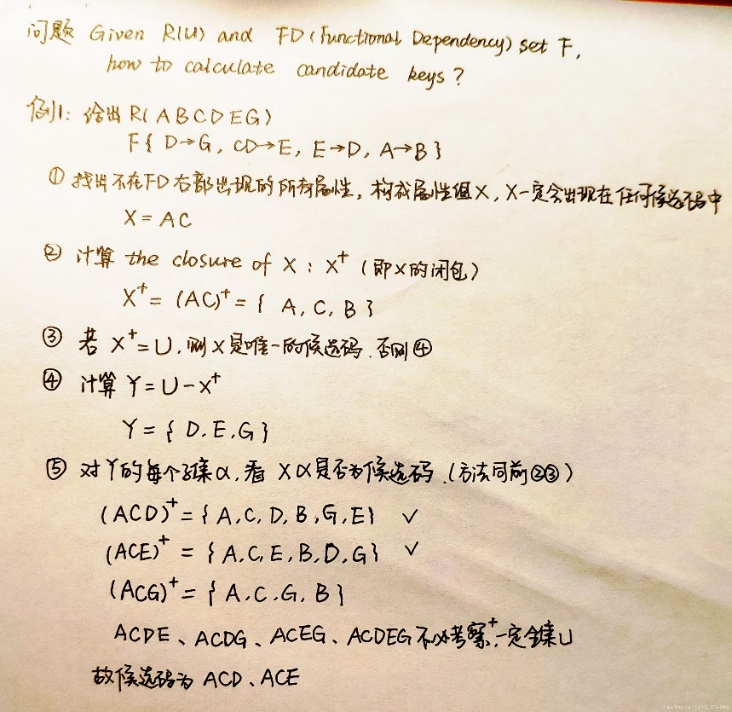 问题 Given R(U) and FD(Functional Dependency) set F,
how to calculate candidate keys?
例1: 给出 R(ABCDEG)
F{ D→G, CD→E, E→D, A→B }
① 找出不在FD右部出现的所有属性, 构成属性组X, X一定会出现在任何候选码中
X = AC
② 计算 the closure of X : X⁺ (即X的闭包)
X⁺ = (AC)⁺ = { A, C, B }
③ 若 X⁺=U, 则X是唯一的候选码. 否则④
④ 计算 Y=U-X⁺
Y = { D, E, G }
⑤ 对Y的每个子集α, 看 Xα是否为候选码. (方法同前②③)
(ACD)⁺ = { A, C, D, B, G, E } ✓
(ACE)⁺ = { A, C, E, B, D, G } ✓
(ACG)⁺ = { A, C, G, B }
ACDE、ACDG、ACEG、ACDEG 不必考察⁺一定全集U
故候选码为 ACD、ACE